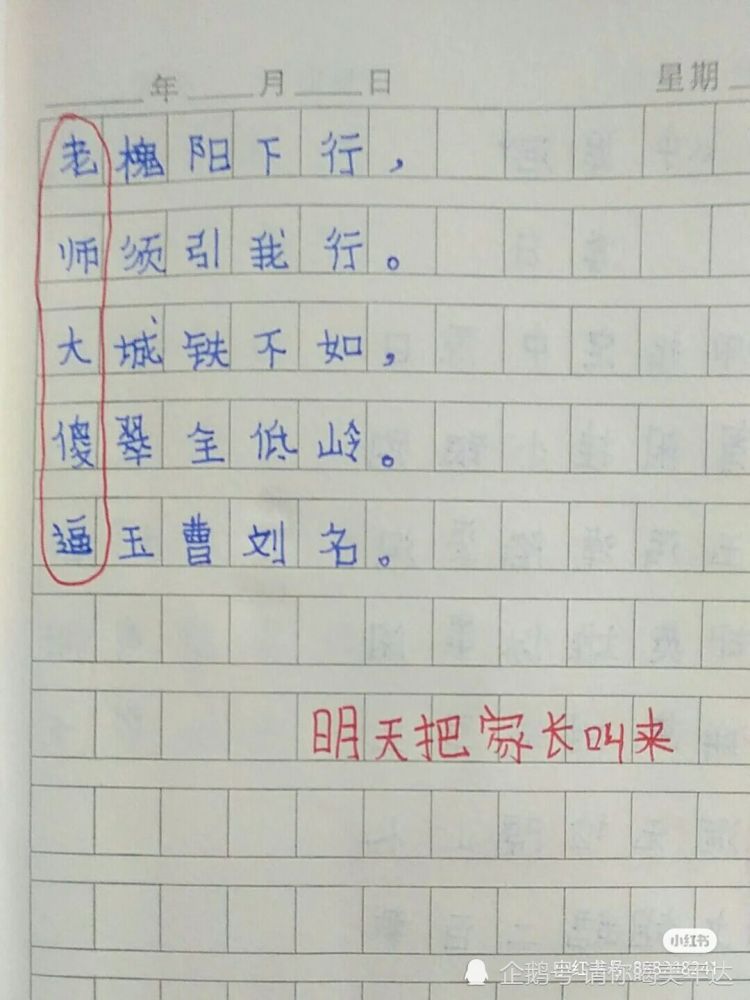 年 月 日 星期
老槐阳下行，
师须引我行。
大城铁不如，
傻翠全低岭。
逼玉曹刘名。
明天把家长叫来
小红书
企鹅号 请你喝美年达